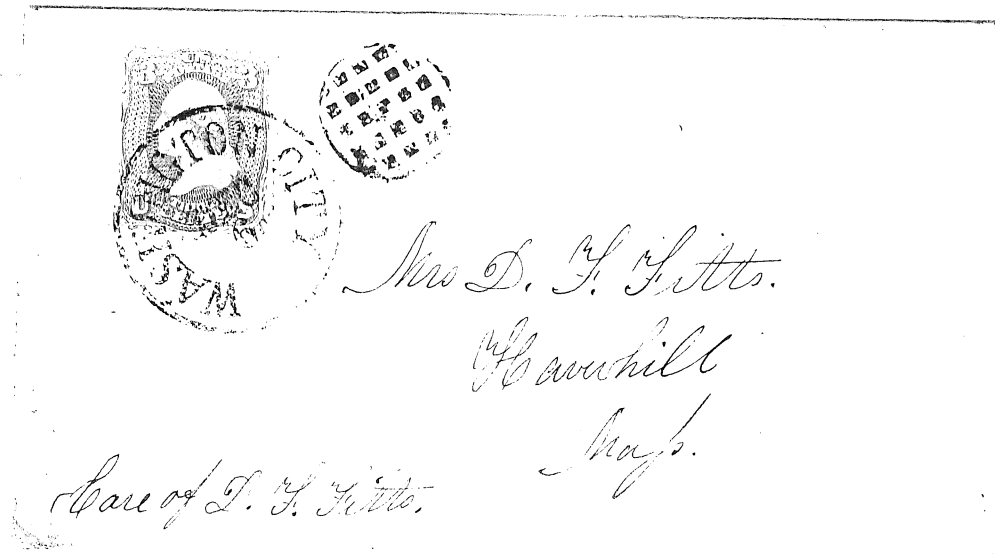 3 3
WASHINGTON CITY
Mrs D. F. Fitts.
Haverhill
Mass.
Care of D. F. Fitts.